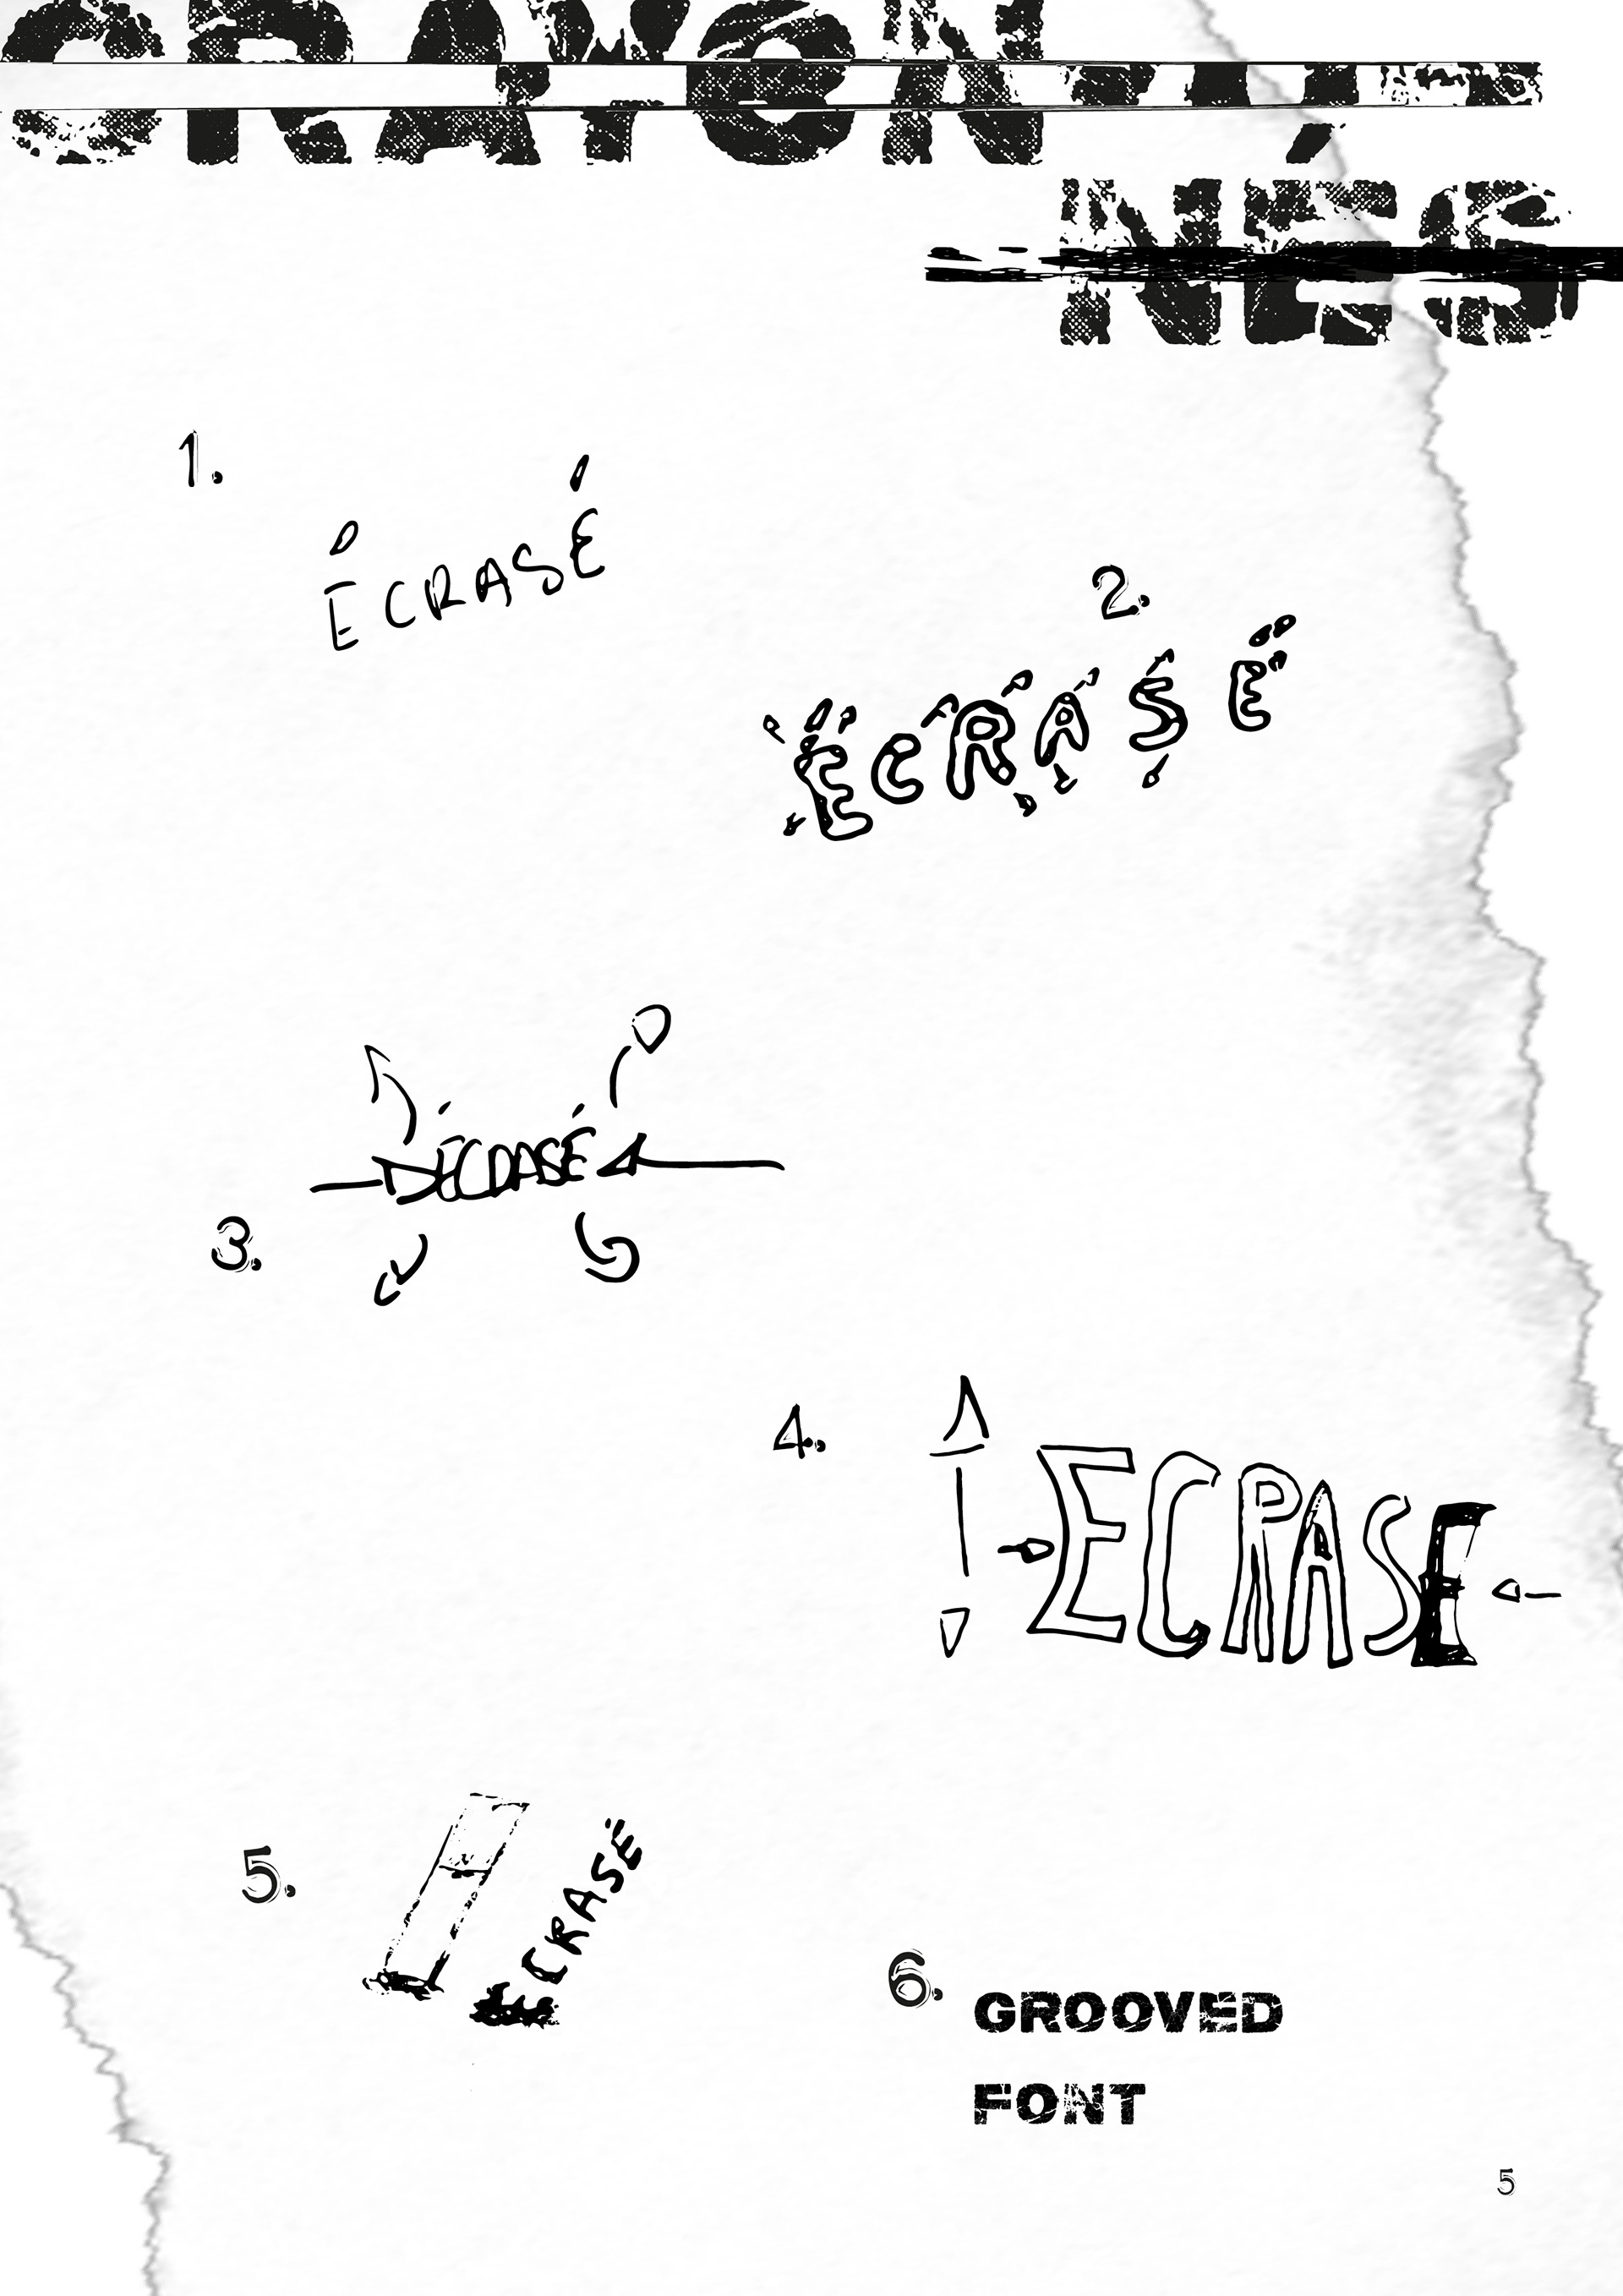 CRAYON
NÉS
1.
ÉCRASÉ
2.
ÉCRASÉ
DÉCDASÉ
3.
4.
ECRASE
5.
ECRASÉ
6.
GROOVED
FONT
5